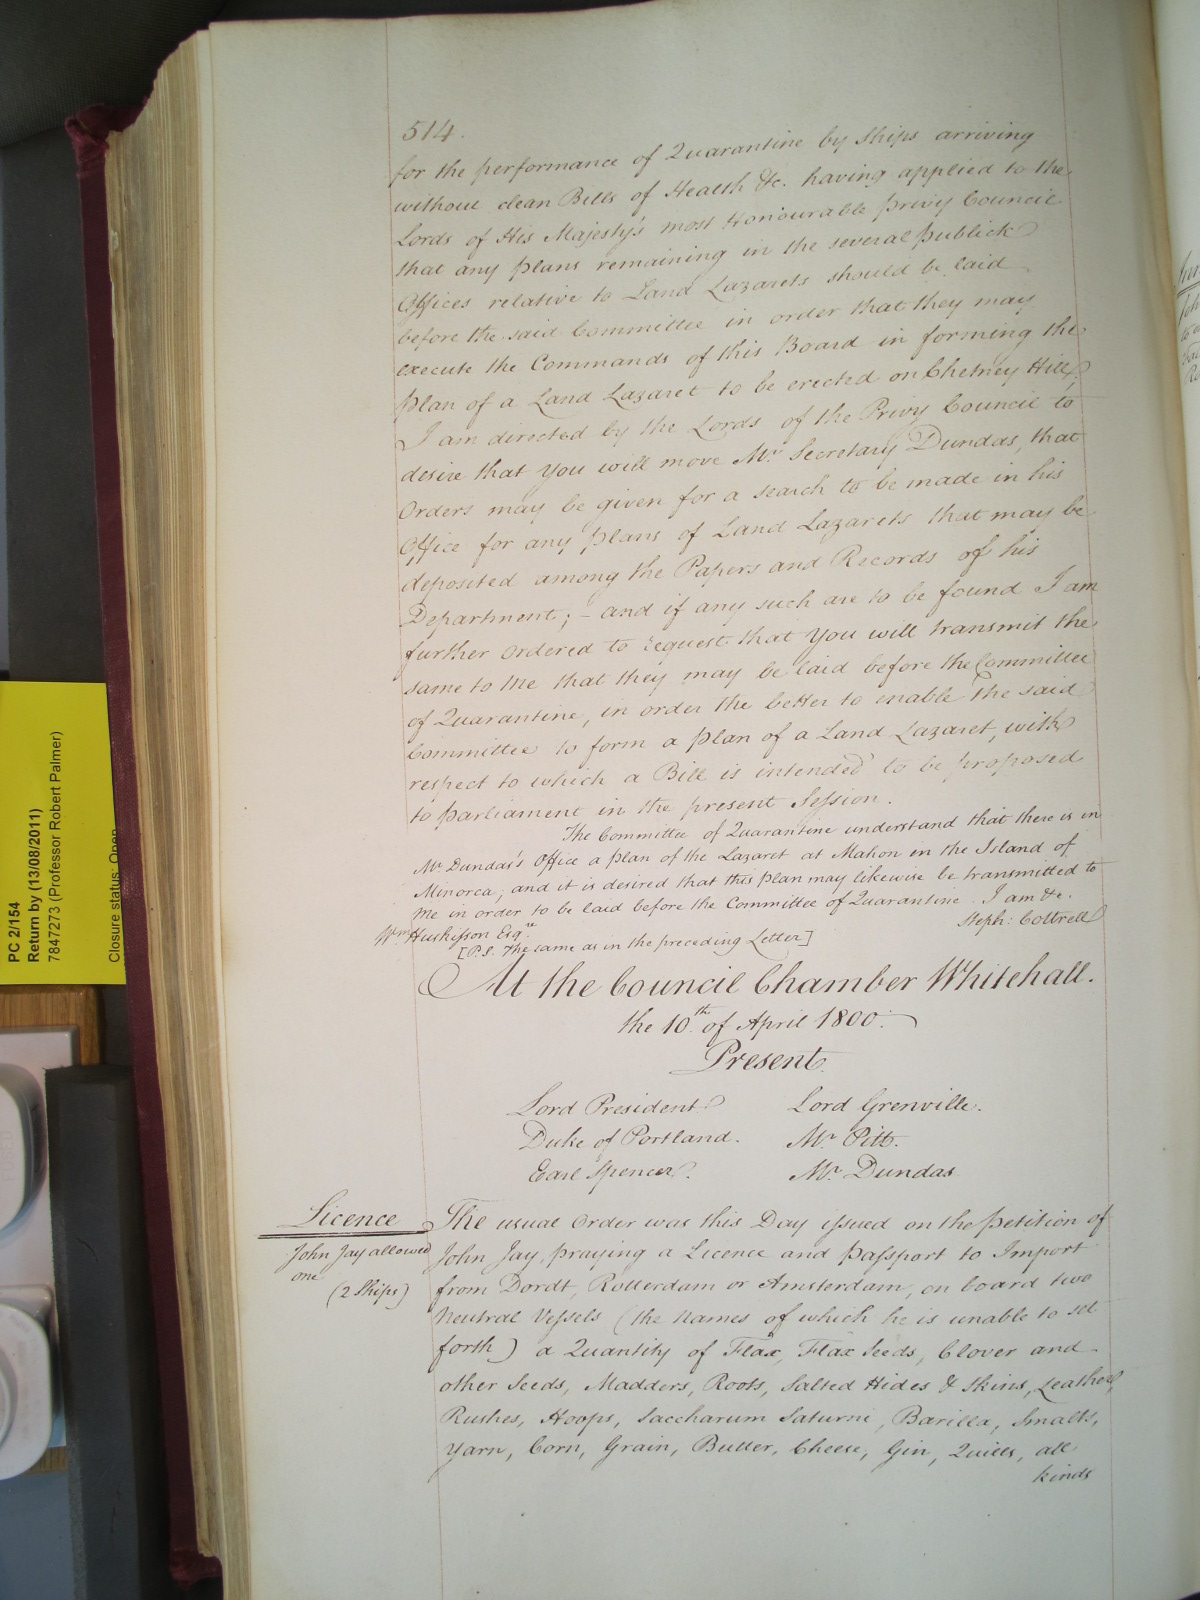 514.
for the performance of Quarantine by Ships arriving
without clean Bills of Health &c. having applied to the
Lords of His Majesty's most Honourable Privy Council
that any Plans remaining in the several Publick
Offices relative to Land Lazarets should be laid
before the said Committee in order that they may
execute the Commands of this Board in forming the
Plan of a Land Lazaret to be erected on Chetney Hill;
I am directed by the Lords of the Privy Council to
desire that You will move Mr. Secretary Dundas, that
Orders may be given for a search to be made in his
Office for any Plans of Land Lazarets that may be
deposited among the Papers and Records of his
Department; - and if any such are to be found I am
further ordered to request that You will transmit the
same to Me that they may be laid before the Committee
of Quarantine, in order the better to enable the said
Committee to form a Plan of a Land Lazaret, with
respect to which a Bill is intended to be proposed
to Parliament in the present Session.
The Committee of Quarantine understand that there is in
Mr. Dundas's Office a Plan of the Lazaret at Mahon in the Island of
Minorca, and it is desired that this Plan may likewise be transmitted to
Me in order to be laid before the Committee of Quarantine. I am &c.
Steph: Cottrell
Wm. Huskisson Esqre.
[P.S. The same as in the preceding Letter]
At the Council Chamber Whitehall.
the 10th. of April 1800.
Present.
Lord President Lord Grenville.
Duke of Portland. Mr. Pitt.
Earl Spencer. Mr. Dundas
Licence
John Jay allowed
one
(2 Ships)
The usual Order was this Day issued on the Petition of
John Jay, praying a Licence and Passport to Import
from Dordt, Rotterdam or Amsterdam, on board two
Neutral Vessels (the Names of which he is unable to set
forth) a Quantity of Flax, Flax Seeds, Clover and
other Seeds, Madders, Roots, Salted Hides & Skins, Leather,
Rushes, Hoops, Saccharum Saturni, Barilla, Smalts,
Yarn, Corn, Grain, Butter, Cheese, Gin, Quills, all
kinds
PC 2/154
Return by (13/08/2011)
7847273 (Professor Robert Palmer)
Closure status: Open